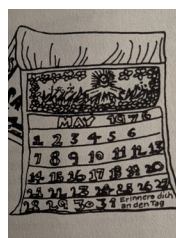 MAY 1976
1 2 3 4 5 6
7 8 9 10 11 12 13
14 15 16 17 18 19 20
21 22 23 24 25 26 27
28 29 30 31 Erinnere dich
an den Tag